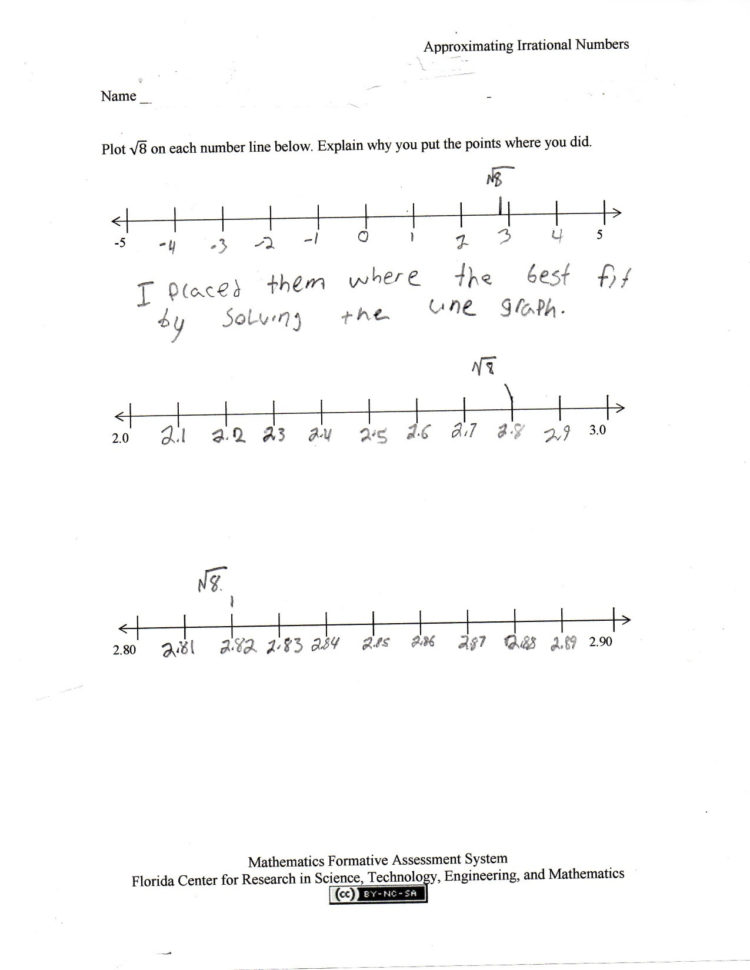 Approximating Irrational Numbers
Name
Plot √8 on each number line below. Explain why you put the points where you did.
√8
-5 -4 -3 -2 -1 0 1 2 3 4 5
I placed them where the best fit
by solving the line graph.
√8
2.0 2.1 2.2 2.3 2.4 2.5 2.6 2.7 2.8 2.9 3.0
√8.
2.80 2.81 2.82 2.83 2.84 2.85 2.86 2.87 2.88 2.89 2.90
Mathematics Formative Assessment System
Florida Center for Research in Science, Technology, Engineering, and Mathematics
(cc) BY-NC-SA